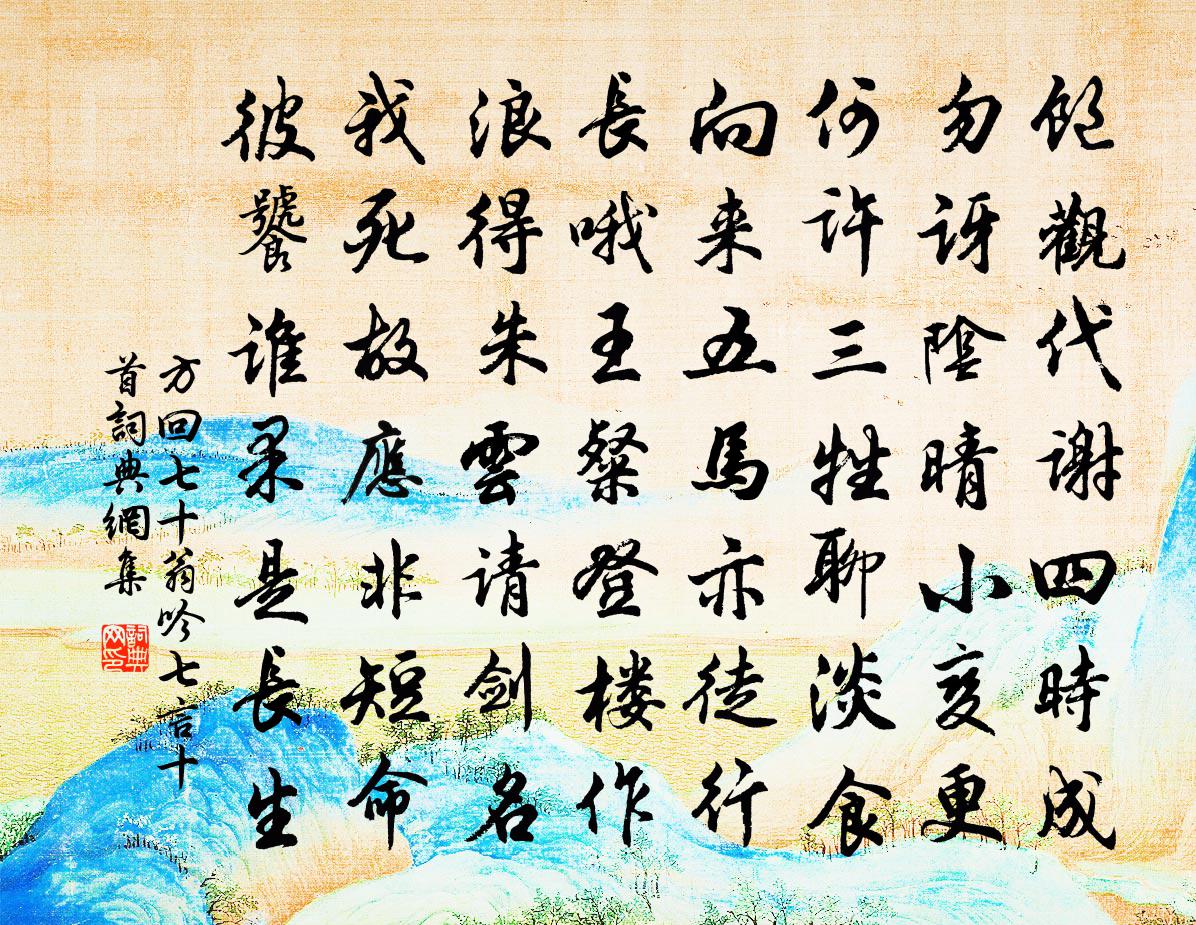 飽觀代谢四時成
勿訝陰晴小変更
何許三牲聊淡食
向来五馬亦徒行
長哦王粲登楼作
浪得朱雲请剑名
我死故應非短命
彼饕谁果是長生
方回七十翁吟七言十
首詞典網集
詞典网印